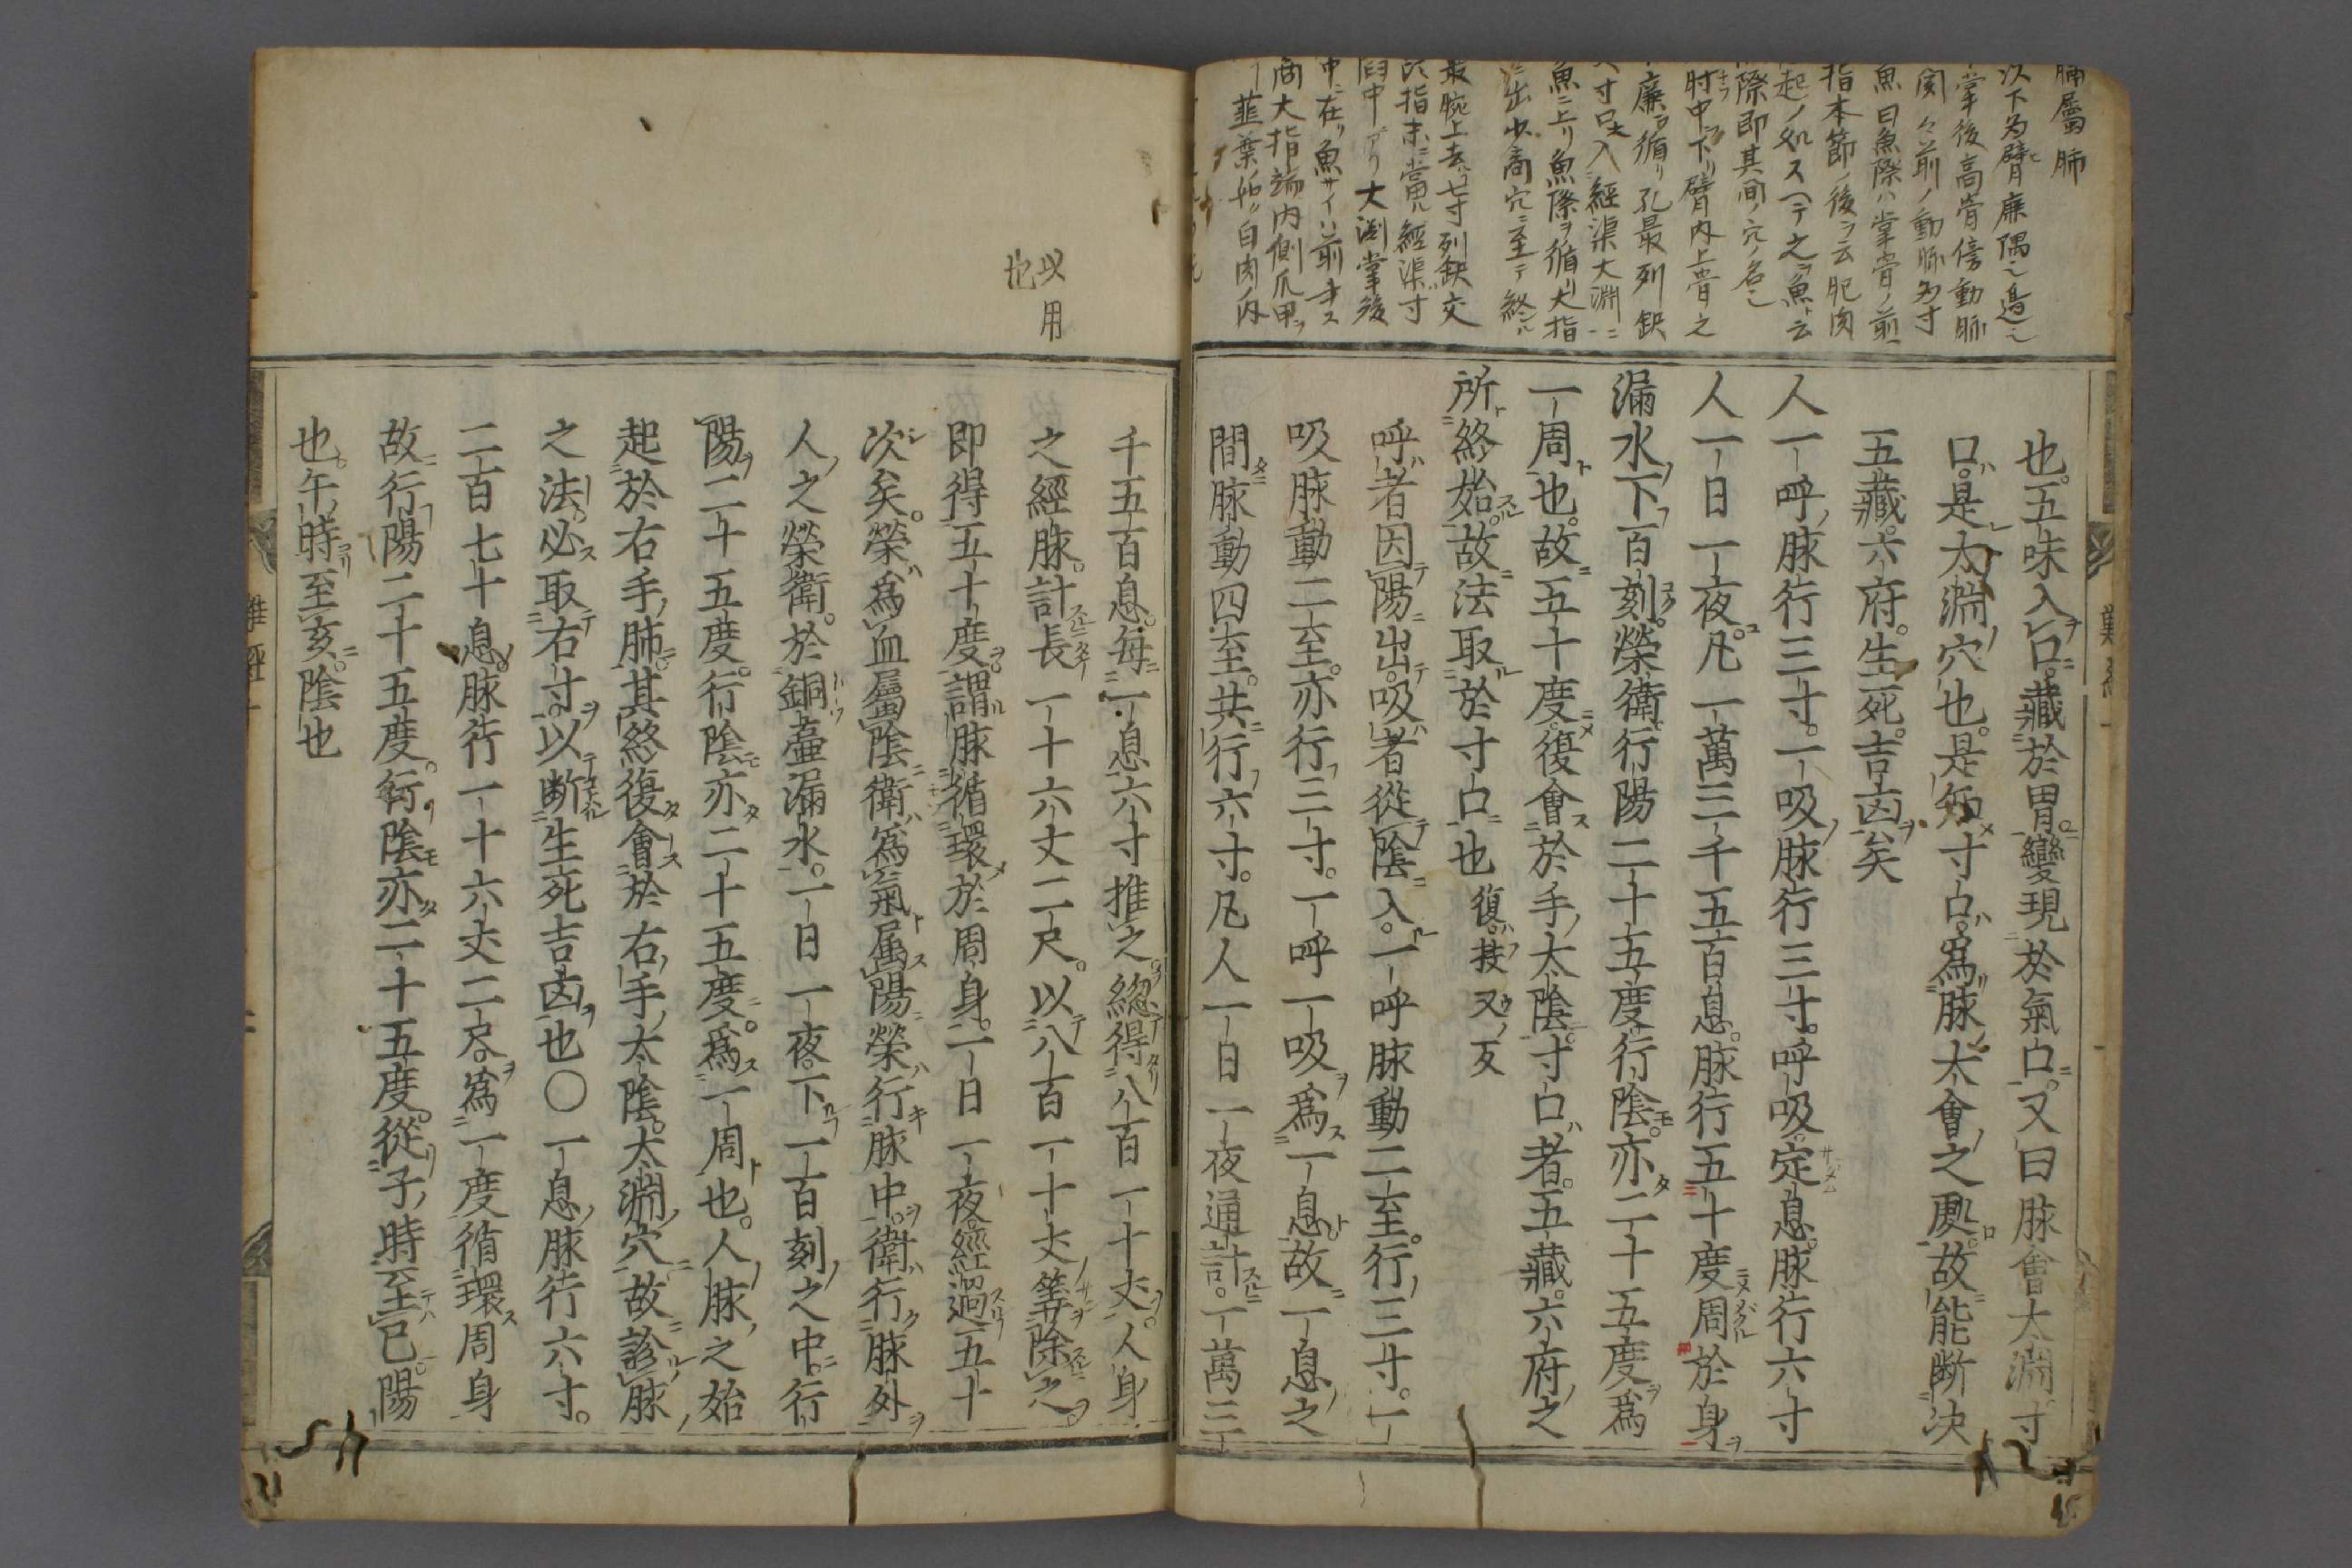 也。五味入口。藏於胃。變現於氣口。又曰脉會大淵。寸
口。是大淵穴也。是知寸口。爲脉大會之處。故能断决
五藏。六府。生死。吉凶矣
人一呼脉行三寸。一吸脉行三寸。呼吸定息。脉行六寸
人一日一夜。凡一萬三千五百息。脉行五十度周於身
漏水下百刻。榮衛行陽二十五度。行陰亦二十五度爲
一周也。故五十度復會於手太陰。寸口者。五藏六府之
所終始。故法取於寸口也 復。扶又反
呼者因陽出。吸者從陰入。一呼脉動二至。行三寸。一
吸脉動二至。亦行三寸。一呼一吸爲一息。故一息之
間脉動四至。共行六寸。凡人一日一夜通計。一萬三
千五百息。每一息六寸推之。緫得八百一十丈。人身
之經脉。計長一十六丈二尺。以八百一十丈筭除之。
即得五十度。謂脉循環於周身。一日一夜。經過五十
次矣。榮爲血屬陰。衛爲氣属陽。榮行脉中。衛行脉外
人之榮衛。於銅壷漏水。一日一夜。下一百刻之中。行
陽二十五度。行陰亦二十五度。爲一周也。人脉之始
起於右手肺。其終復會於右手太陰。太淵穴故診脉
之法。必取右寸。以断生死吉凶也〇一息脉行六寸。
二百七十息。脉行一十六丈二尺。爲一度循環周身
故行陽二十五度。行陰亦二十五度。從子時至巳陽
也。午時至亥。陰也
肺屬肺
次下为臂廉隅之邉也
掌後高骨傍動脉
関々前ノ動脉为寸
魚曰魚際ハ掌骨ノ前
指本節ノ後ヲ云肥肉
起ノ処スヘテ之ヲ魚ト云
際即其間ノ穴ノ名也
肘中下リ臂内上骨之
廉ヲ循リ孔最列缺
寸口ニ入經渠大淵ニ
魚ニ上リ魚際ヲ循リ大指
ニ出少商穴ニ至テ終ル
最腕上去ヿ七寸列缺交
指末ニ當ル經渠寸
臼中アリ大渕掌後
中ニ在リ魚サイハ前キス
商大指端内側爪甲ヲ
韮葉ノ如ク白肉ノ内
以用
也